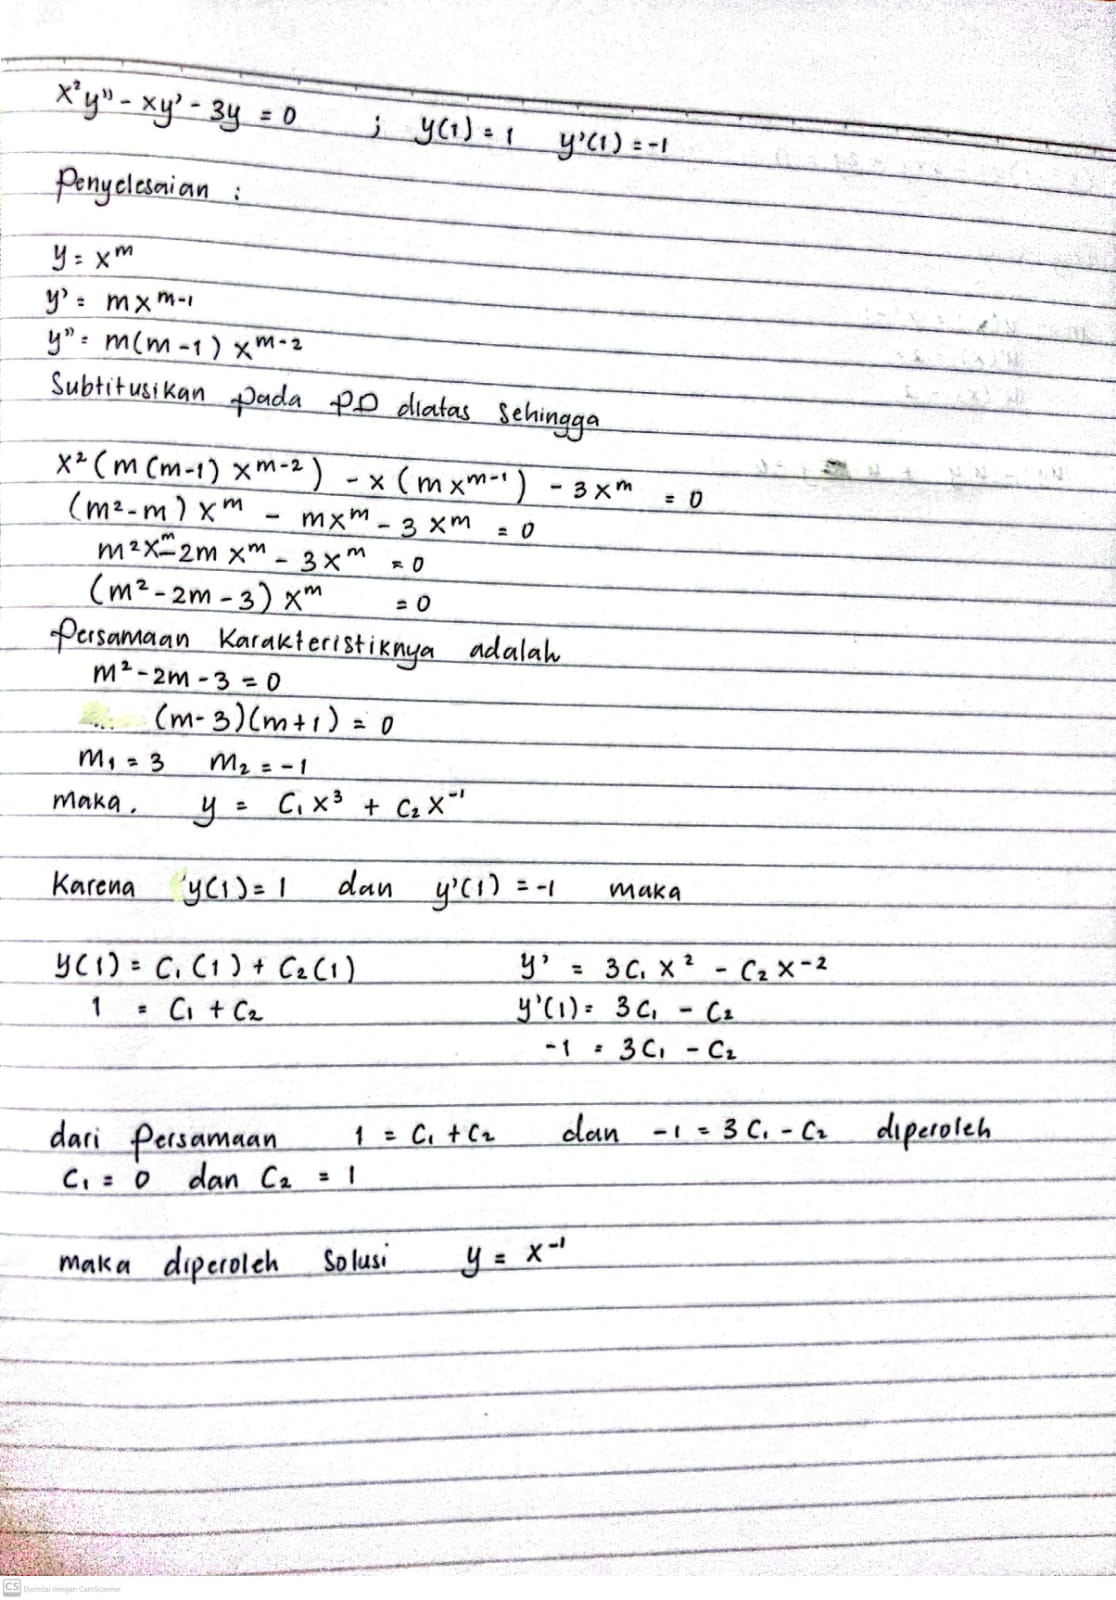 x²y'' - xy' - 3y = 0 ; y(1) = 1 y'(1) = -1
Penyelesaian :
y = x^m
y' = mx^m-1
y'' = m(m-1) x^m-2
Subtitusikan pada PD diatas sehingga
x² (m(m-1) x^m-2) - x (mx^m-1) - 3x^m = 0
(m²-m) x^m - mx^m - 3x^m = 0
m²x^m - 2m x^m - 3x^m = 0
(m² - 2m - 3) x^m = 0
Persamaan Karakteristiknya adalah
m² - 2m - 3 = 0
(m-3)(m+1) = 0
m₁ = 3 m₂ = -1
maka. y = C₁x³ + C₂x⁻¹
Karena y(1) = 1 dan y'(1) = -1 maka
y(1) = C₁(1) + C₂(1) y' = 3C₁x² - C₂x⁻²
1 = C₁ + C₂ y'(1) = 3C₁ - C₂
-1 = 3C₁ - C₂
dari Persamaan 1 = C₁ + C₂ dan -1 = 3C₁ - C₂ diperoleh
C₁ = 0 dan C₂ = 1
maka diperoleh Solusi y = x⁻¹
CS Dipindai dengan CamScanner